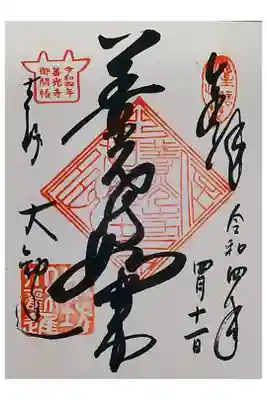 奉拝
令和四年
四月十一日
善光寺如来
令和四年
善光寺
御開帳
大勧進